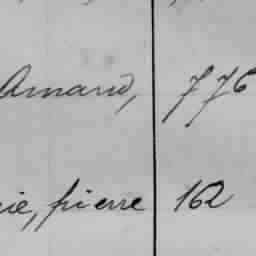 Amand, 776
ie, pierre 162